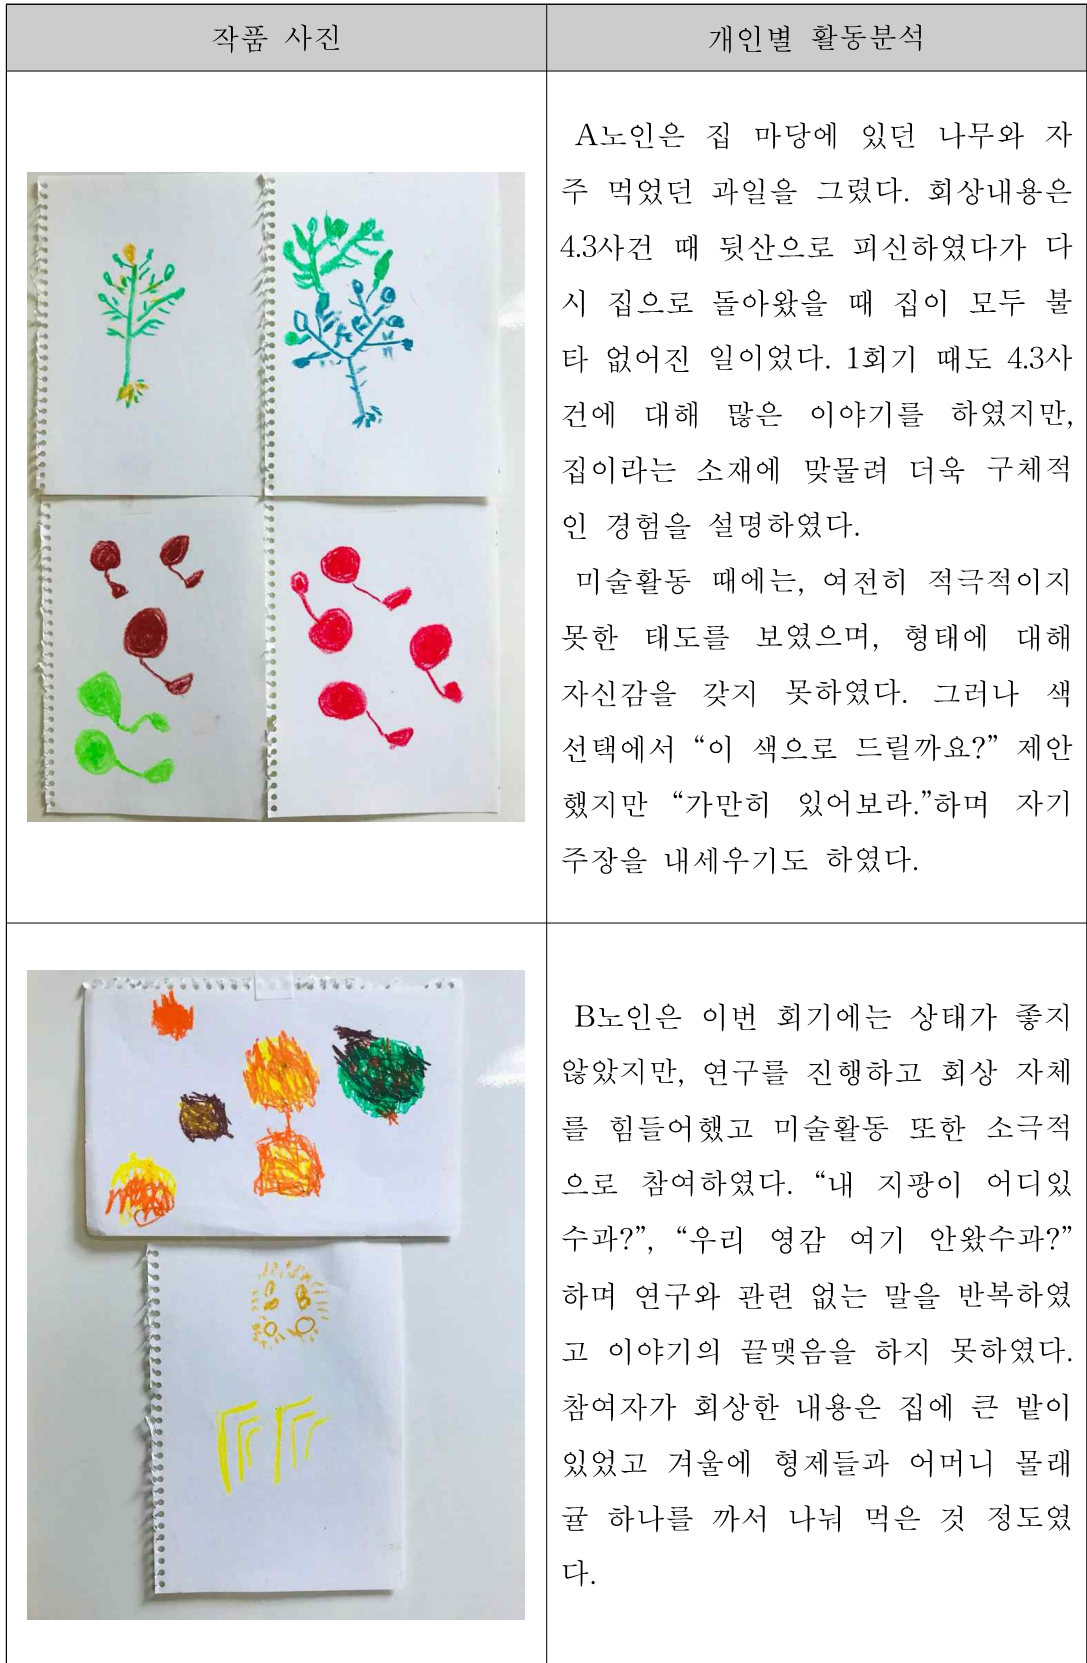 작품 사진
개인별 활동분석
A노인은 집 마당에 있던 나무와 자
주 먹었던 과일을 그렸다. 회상내용은
4.3사건 때 뒷산으로 피신하였다가 다
시 집으로 돌아왔을 때 집이 모두 불
타 없어진 일이었다. 1회기 때도 4.3사
건에 대해 많은 이야기를 하였지만,
집이라는 소재에 맞물려 더욱 구체적
인 경험을 설명하였다.
미술활동 때에는, 여전히 적극적이지
못한 태도를 보였으며, 형태에 대해
자신감을 갖지 못하였다. 그러나 색
선택에서 “이 색으로 드릴까요?” 제안
했지만 “가만히 있어보라.”하며 자기
주장을 내세우기도 하였다.
B노인은 이번 회기에는 상태가 좋지
않았지만, 연구를 진행하고 회상 자체
를 힘들어했고 미술활동 또한 소극적
으로 참여하였다. “내 지팡이 어디있
수과?”, “우리 영감 여기 안왔수과?”
하며 연구와 관련 없는 말을 반복하였
고 이야기의 끝맺음을 하지 못하였다.
참여자가 회상한 내용은 집에 큰 밭이
있었고 겨울에 형제들과 어머니 몰래
귤 하나를 까서 나눠 먹은 것 정도였
다.